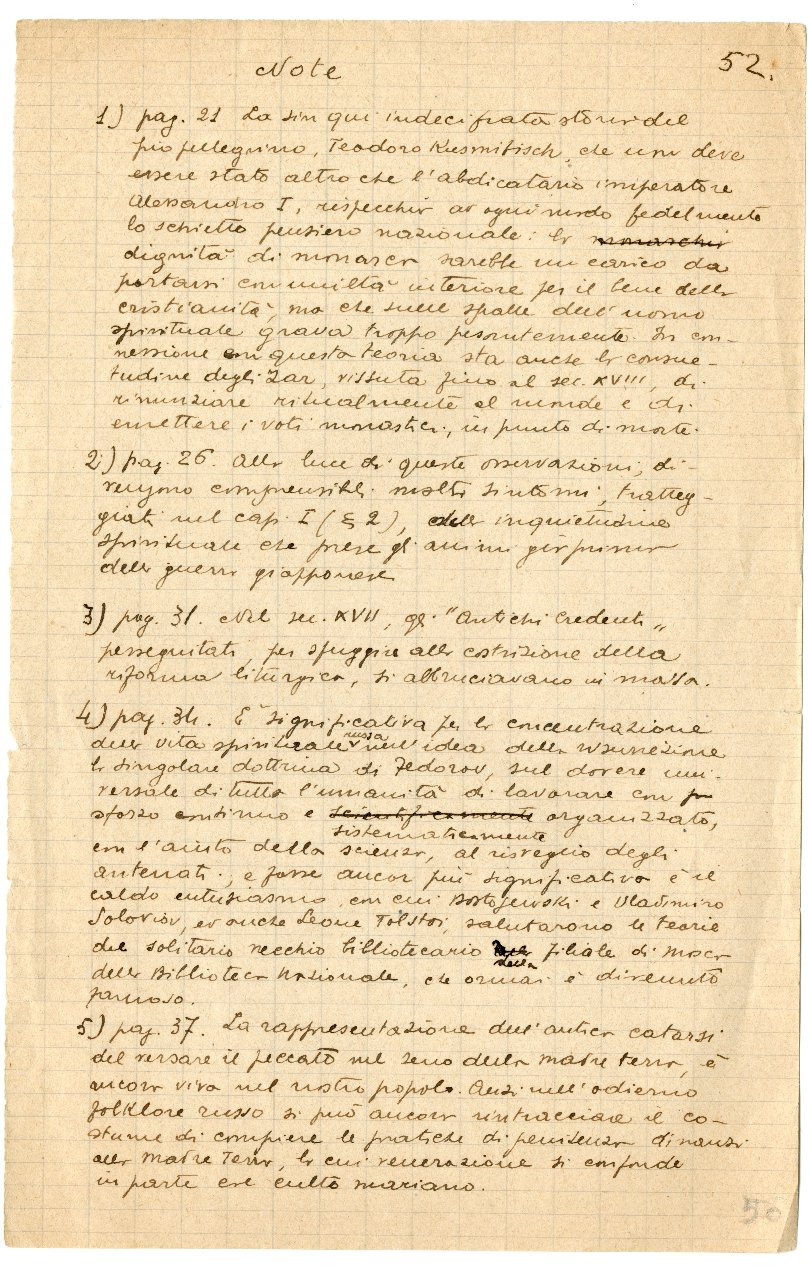 Note
52.
1) pag. 21 La sin qui indecifrata storia del
pio pellegrino, Teodoro Kusmitisch, che non deve
essere stato altro che l'abdicatario imperatore
Alessandro I, rispecchia ad ogni modo fedelmente
lo schietto pensiero nazionale: la monarchia
dignità di monarca sarebbe un carico da
portarsi con umiltà interiore per il bene della
cristianità, ma che sulle spalle dell'uomo
spirituale grava troppo pesantemente. In con-
nessione con questa teoria sta anche la consue-
tudine degli Zar, vissuta fino al sec. XVIII, di
rinunziare ritualmente al mondo e di
emettere i voti monastici, in punto di morte.
2) pag. 26. Alla luce di queste osservazioni, di-
vengono comprensibili molti sintomi, tratteg-
giati nel cap. I (§ 2), dell'inquietudine
spirituale che prese gli animi già prima
della guerra giapponese
3) pag. 31. Nel sec. XVII, gli "Antichi Credenti"
perseguitati, per sfuggire alla costrizione della
riforma liturgica, si abbruciavano in massa.
4) pag. 34. E' significativa per la concentrazione
della vita spirituale russa nell'idea della risurrezione
la singolare dottrina di Fedorov, sul dovere uni-
versale di tutta l'umanità di lavorare con
sforzo continuo e scientificamente organizzato,
sistematicamente
con l'aiuto della scienza, al risveglio degli
antenati; e forse ancor più significativo è il
caldo entusiasmo, con cui Dostojewski e Vladimiro
Soloviov, ed anche Leone Tolstoi, salutarono le teorie
del solitario vecchio bibliotecario della filiale di Mosca
della Biblioteca Nazionale, che ormai è divenuto
famoso.
5) pag. 37. La rappresentazione dell'antica catarsi
del versare il peccato nel seno della Madre Terra, è
ancora viva nel nostro popolo. Anzi nell'odierno
folklore russo si può ancora rintracciare il co-
stume di compiere le pratiche di penitenza dinanzi
alla Madre Terra, la cui venerazione si confonde
in parte col culto mariano.
50